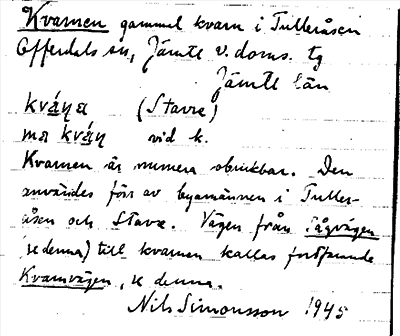 Kvarnen gammal kvarn i Tulleråsen
Offerdals sn, Jämte v. doms. tg
Jämtl län
kvána (Stavre)
ma kván vid k.
Kvarnen är numera obrukbar. Den
användes förr av byamännen i Tuller-
åsen och Stavre. Vägen från Tågvägen
(se denna) till kvarnen kallas fortfarande
Kvarnvägen, se denna.
Nils Simonsson 1945